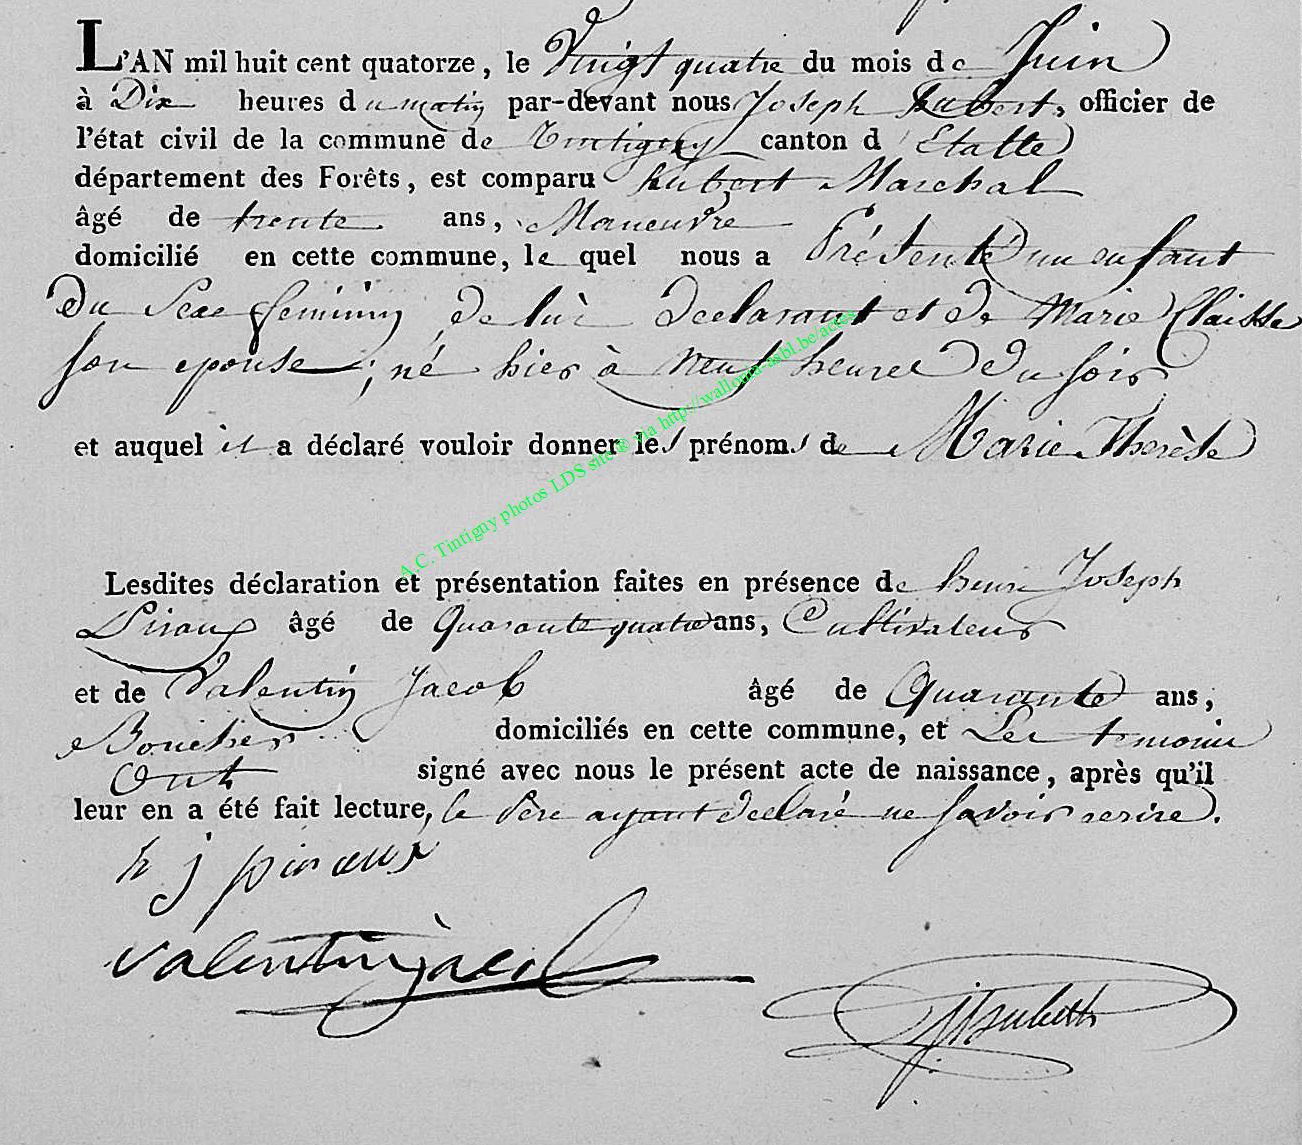 L'AN mil huit cent quatorze, le Vingt quatre du mois de Juin
à Dix heures du matin par-devant nous Joseph hubert, officier de
l'état civil de la commune de Tintigny canton d'Etalle
département des Forêts, est comparu hubert Marchal
âgé de trente ans, Maneuvre
domicilié en cette commune, le quel nous a Présenté un enfant
Du Sexe feminin, de lui Declarant et de Marie Claisse
son epouse; né hier à neuf heures Du soir
et auquel il a déclaré vouloir donner les prénoms de Marie Therèse
A.C. Tintigny photos LDS site ® via http://wallonia-asbl.be/actes
Lesdites déclaration et présentation faites en présence de henri Joseph
Piraux âgé de Quarante quatre ans, Cultivateur
et de Valentin Jacob âgé de Quarante ans,
Boucher domiciliés en cette commune, et Les temoins
Ont signé avec nous le présent acte de naissance, après qu'il
leur en a été fait lecture, le Père ayant declaré ne savoir ecrire.
h j piraux
valentin jacob